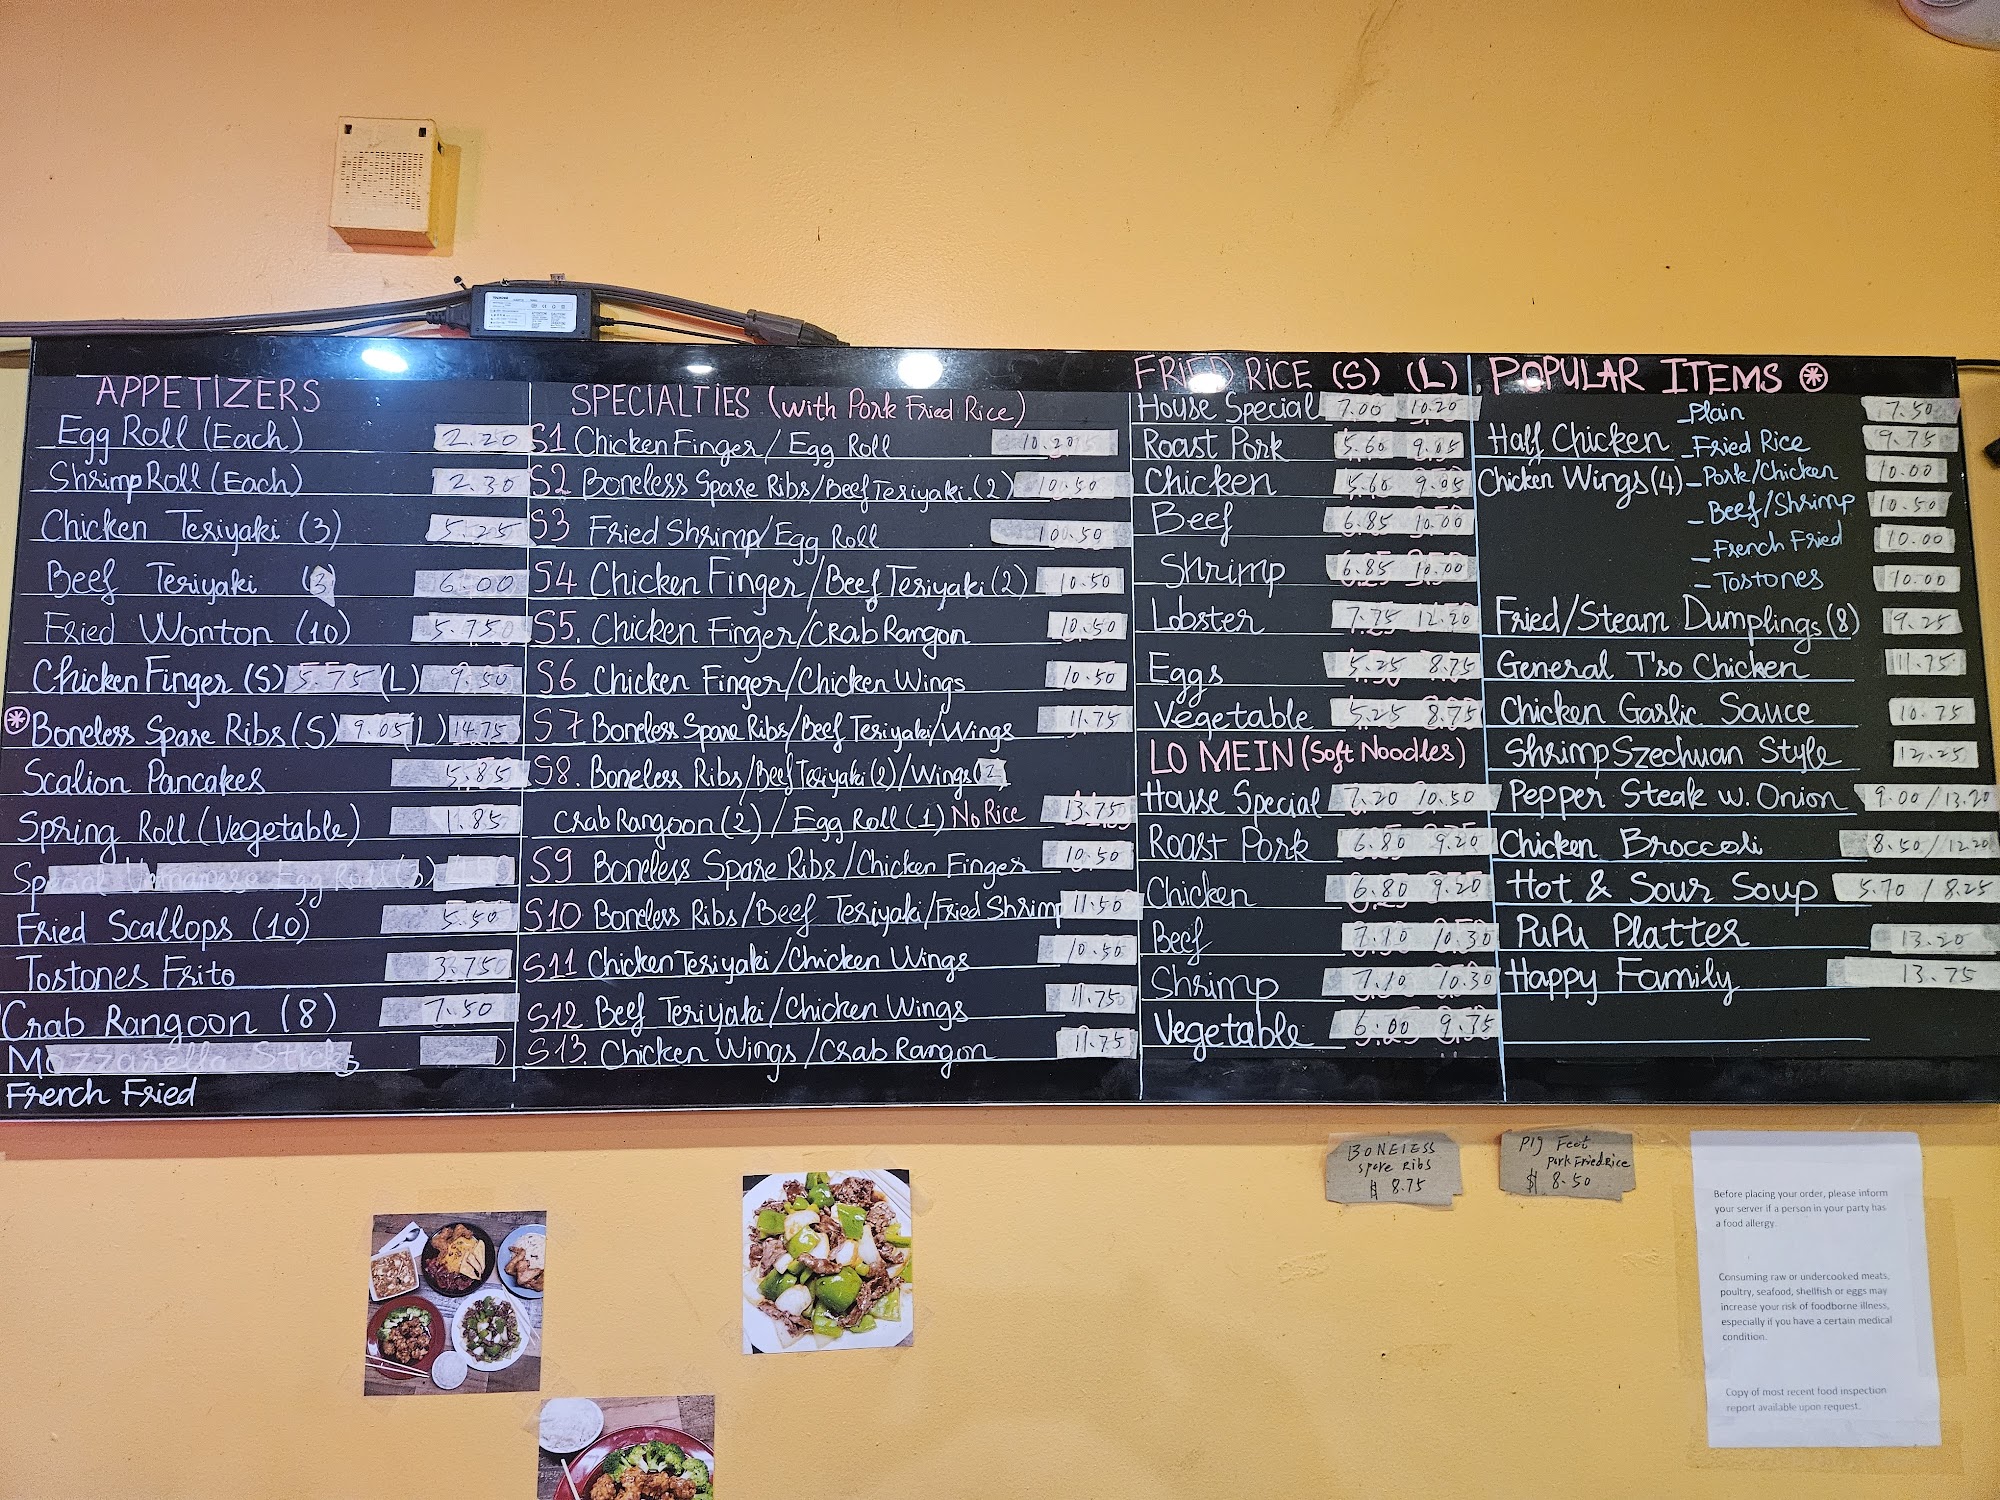 APPETIZERS
Egg Roll (Each) 2.20
Shrimp Roll (Each) 2.30
Chicken Teriyaki (3) 5.25
Beef Teriyaki (3) 6.00
Fried Wonton (10) 5.75
Chicken Finger (S) 5.75 (L) 9.50
Boneless Spare Ribs (S) 9.05 (L) 14.75
Scalion Pancakes 5.85
Spring Roll (Vegetable) 1.85
Special Vietnamese Egg Rolls (3)
Fried Scallops (10) 5.50
Tostones Frito 3.75
Crab Rangoon (8) 7.50
Mozzarella Sticks
French Fried
SPECIALTIES (with Pork Fried Rice)
S1 Chicken Finger / Egg Roll 10.20
S2 Boneless Spare Ribs/Beef Teriyaki. (2) 10.50
S3 Fried Shrimp/Egg Roll 10.50
S4 Chicken Finger/Beef Teriyaki (2) 10.50
S5. Chicken Finger/Crab Rangon 10.50
S6 Chicken Finger/Chicken Wings 10.50
S7 Boneless Spare Ribs/Beef Teriyaki/Wings 11.75
S8. Boneless Ribs/Beef Teriyaki (2)/Wings (2
Crab Rangoon (2) / Egg Roll (1) No Rice 13.75
S9 Boneless Spare Ribs/Chicken Finger 10.50
S10 Boneless Ribs/Beef Teriyaki/Fried Shrimp 11.50
S11 Chicken Teriyaki/Chicken Wings 10.50
S12 Beef Teriyaki/Chicken Wings 11.75
S13. Chicken Wings /Crab Rangon 11.75
FRIED RICE (S) (L)
House Special 7.00 10.20
Roast Pork 5.60 9.05
Chicken 5.60 9.05
Beef 6.85 10.00
Shrimp 6.85 10.00
Lobster 7.75 12.20
Eggs 5.25 8.75
Vegetable 5.25 8.75
LO MEIN (Soft Noodles)
House Special 7.20 10.50
Roast Pork 6.80 9.20
Chicken 6.80 9.20
Beef 7.10 10.30
Shrimp 7.10 10.30
Vegetable 6.00 9.75
POPULAR ITEMS
Plain 7.50
Half Chicken - Fried Rice 9.75
Chicken Wings (4) - Pork/Chicken 10.00
- Beef/Shrimp 10.50
- French Fried 10.00
- Tostones 10.00
Fried/Steam Dumplings (8) 9.25
General T'so Chicken 11.75
Chicken Garlic Sauce 10.75
Shrimp Szechuan Style 12.25
Pepper Steak w. Onion 9.00 / 13.20
Chicken Broccoli 8.50 / 12.20
Hot & Sour Soup 5.70 / 8.25
PuPu Platter 13.20
Happy Family 13.75
BONELESS
Spare Ribs
$ 8.75
Pig Feet
Pork Fried Rice
$ 8.50
Before placing your order, please inform
your server if a person in your party has
a food allergy.
Consuming raw or undercooked meats,
poultry, seafood, shellfish or eggs may
increase your risk of foodborne illness,
especially if you have a certain medical
condition.
Copy of most recent food inspection
report available upon request.